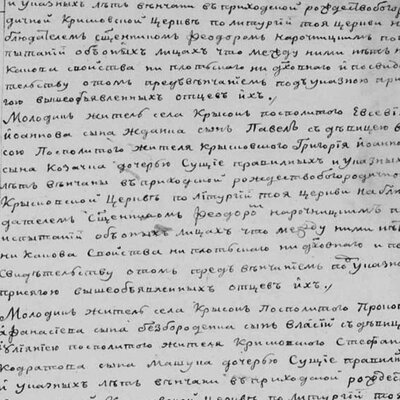 и указныхъ лѣтъ вѣнчаны въ приходской рождествобогоро
дичной Крисковской Церквѣ по литургіи тоя церкви на
блюдателемъ Сщенникомъ Феодоромъ Нарочницкимъ по
пытаніи обѣ оныхъ лицахъ что между ними нѣтъ н
какова свойства ни плотьскаго ни духовнаго и посвид
тельству о томъ предъ вѣнчаніемъ подъ указною при
гою вышеобъявленныхъ отцевъ ихъ
Молодикъ житель села Крысокъ посполитого Евсевія
Іоаннова сына Жданка сынъ Павелъ съ дѣвицею
сою Посполитого жителя Крисковского Григорія Іоанно
сына Козачка дочерью Сущіе правилныхъ и указны
лѣтъ вѣнчаны въ приходской рождествобогородично
Крысковской Церквѣ по літургіи тоя церкви набли
дателемъ Сщенникомъ Феодоромъ нарочницкимъ п
испытаніи обѣ оныхъ лицахъ что между ними нѣт
ни какова Свойства ни плотьскаго ни духовнаго и по
Свидѣтельству о томъ предъ вѣнчаніемъ подъ указно
присягою вышеобъявленныхъ отцевъ ихъ
Молодикъ житель села Крысокъ Посполитого Проко
Афанасіева сына безбороденка сынъ Власій съ дѣвиц
Іуліаніею посполитого жителя Крисковского Стефан
Кодратова сына Машука дочерью Сущіе правилн
и указныхъ лѣтъ вѣнчаны въ приходской рождест
Крисковской Церквѣ по литургіи тоя